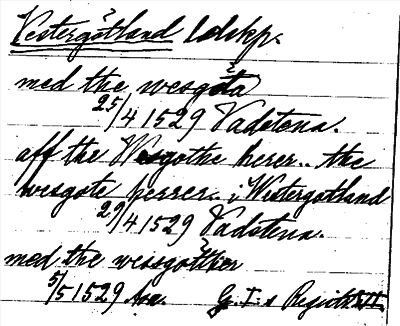 Vestergötland ldskp.
med the wesgöta
25/4 1529 Vadstena.
aff the Wesgothe herer.. the
wesgote herrer.. i Westergotland
29/4 1529 Vadstena.
med the
5/5 1529 G. I:s Registr. VI